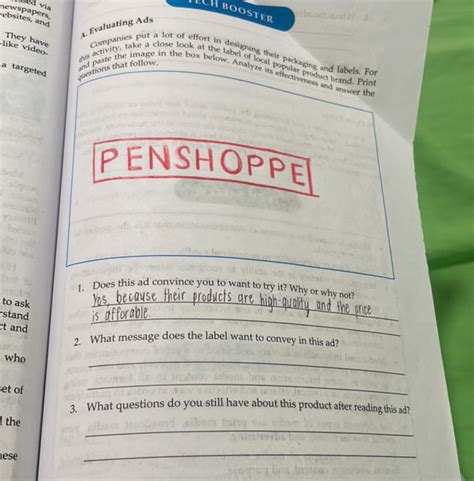 TECH BOOSTER
A. Evaluating Ads
Companies put a lot of effort in designing their packaging and labels. For
this activity, take a close look at the label of local popular product brand. Print
and paste the image in the box below. Analyze its effectiveness and answer the
questions that follow.
PENSHOPPE
1. Does this ad convince you to want to try it? Why or why not?
Yes, because their products are high-quality and the price
is afforable.
2. What message does the label want to convey in this ad?
3. What questions do you still have about this product after reading this ad?
via
newspapers,
ebsites, and
They have
-like video-
a targeted
to ask
and
who
set of
the